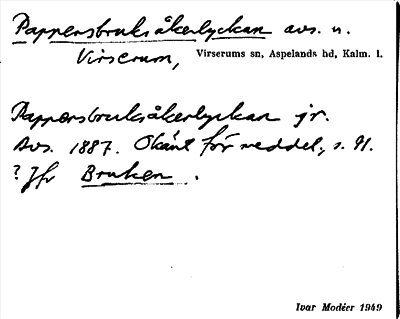 Pappersbruksåkerlyckan avs. u.
Virserum, Virserums sn, Aspelands hd, Kalm. l.
Pappersbruksåkerlyckan jr.
Avs. 1887. Okänt för meddel., s. 91.
? Jfr Bruken .
Ivar Modéer 1949